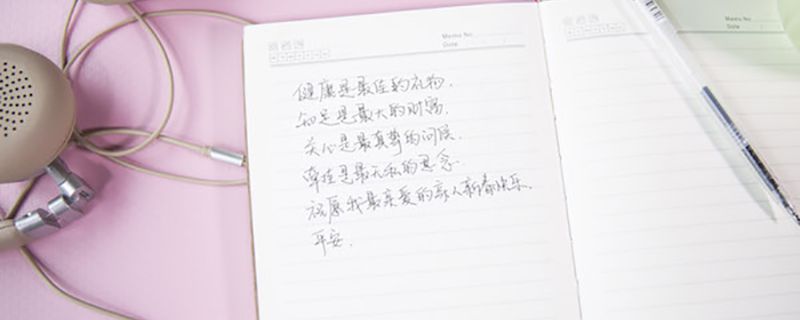 Memo No.
Date
健康是最佳的礼物.
知足是最大的财富.
关心是最真挚的问候.
牵挂是最无私的思念.
祝愿我最亲爱的亲人新春快乐.
平安.
Memo No.
Date